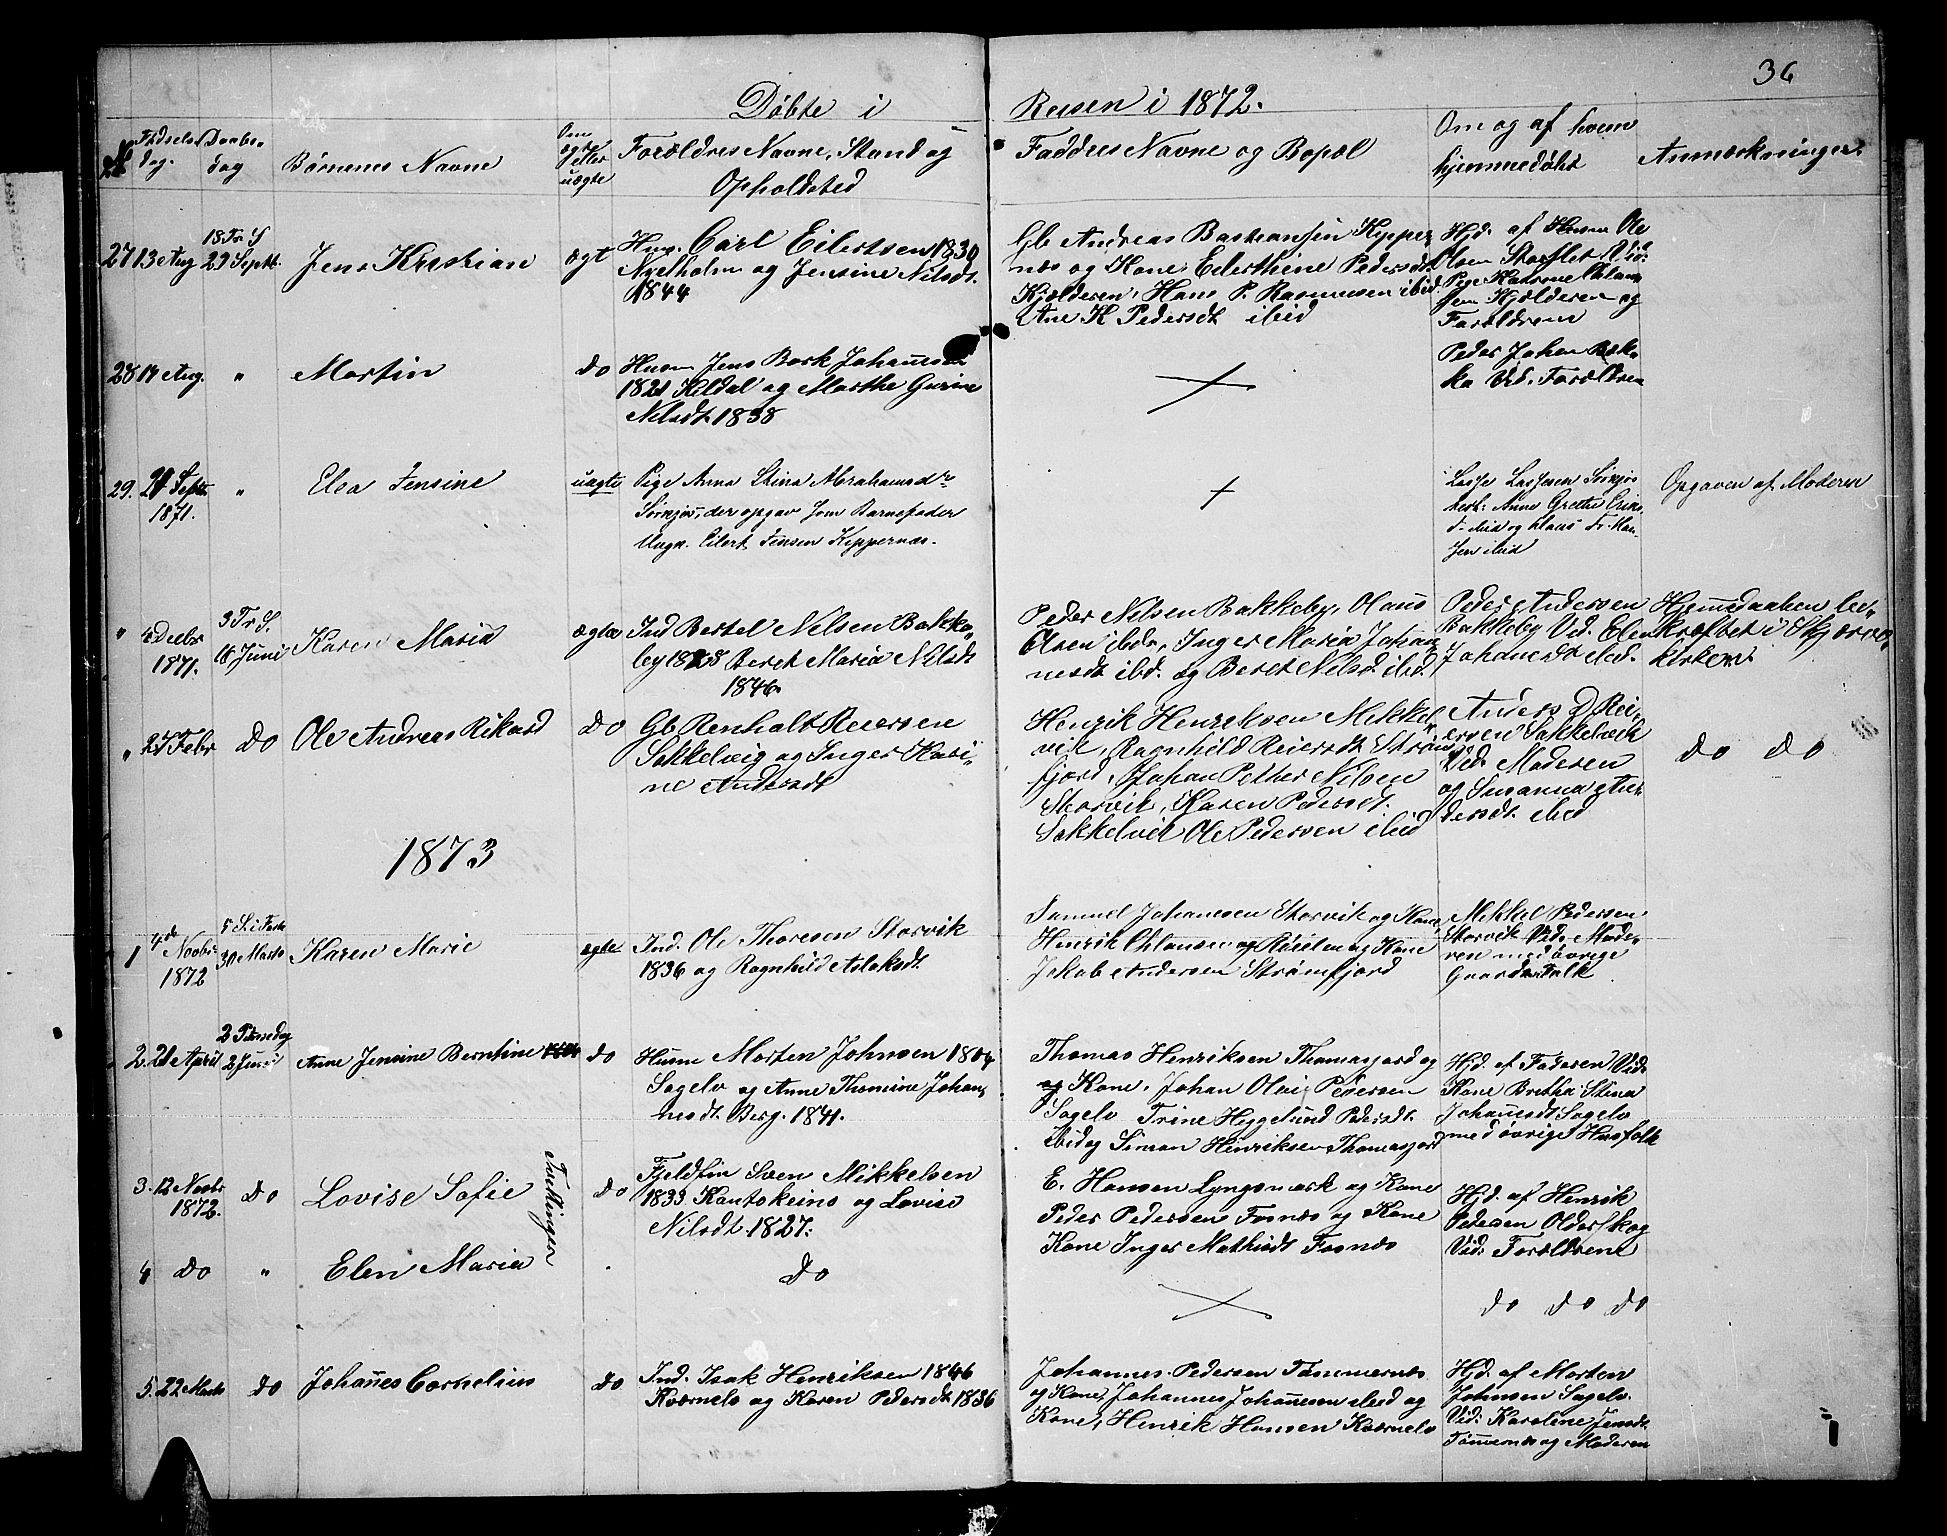 36
Døbte i Reisen i 1872.
№ Fødsels dag. Daabs dag Børnenes Navne Om ægte eller uægte Forældres Navne, Stand og Opholdsted Faddres Navne og Bopæl Om og af hvem hjemmedøbt Anmærkninger
27 13 Aug
18 Tr S
29 Septb.
Jens Kristian
ægt
Husm. Carl Eilertsen 1830
Nyeholm og Jensine Nilsdt.
1844
Gb Andreas Bastiansen Kepper
næs og Kone, Ederthine Pedersdt
Kjelderen, Hans P. Rasmussen ibid.
Ane K Pedersdt ibid
Hjd. af Hans Ole
Olsen Storslet Vid:
Pige
Kjelderen og
Forældrene
28 14 Aug. "
Martin
do
Husm Jens Bork Johannesen
1821 Kildal og Marthe Gurine
Nilsdt. 1838
Peder Johan Bæk
ka Vid. Forældren
29. 21 Septb.
1871.
"
Elea Jensine
uægte
Pige Anna Stina Abrahamsdr
Sørkjos, der opgav som Barnefader
Ungk. Eilert Jensen Keppernæs.
Lasse Lassesen Sørkjos
Anne Grethe Eriks
d. ibid og Klaus Fr. Han
sen ibid
Opgaven af Moderen
" 6 Decbr
1871.
3 Tr. S.
16 Juni
Karen Maria
ægte
Ind Bertel Nilsen Bakke
by 1838 Beret Maria Nilsdt
1846.
Peder Nilsen Bakkeby, Olaus
Olsen ibdr, Inger Maria Johan
nesdt ibd. og Beret Nilsd. ibid.
Peder Andersen
Bakkeby Vid. Elen
Johanesdt ibid.
Hjemmedaaben be
kræftet i Skjærvø
kirken.
" 27 Febr do
Ole Andreas Rikard
do
Gb Renholt Reiersen
Sokkelvig og Inger Kari
ne Andersdt
Henrik Henriksen Mikkel
vik, Ragnhild Reiersdt Strøm
fjord, Johan Petter Nilsen
Storvik, Karen Pedersdt.
Sokkelvik Ole Pedersen ibid
Anders D Rei
ersen Sokkelvik
Vid. Moderen
og Susanna An
dersdt. ibid
do do
1873
1 4de
Novbr
1872
5 S. i Faste
30 Marts
Karen Marie
ægte
Ind. Ole Thoresen Storvik
1836 og Ragnhild Aslaksdt.
Samuel Johanesen Storvik og Kone
Henrik Chlausen og Kone
Jakob Andersen Strømfjord
Mikkel Pedersen
Storvik Vid. Mode
ren med øvrige
Gaardsfolk
2. 21 April
2 Pintsedag
2 Juni
Anne Jensine Berntine
do
Husm Morten Johnsen 1804
Sagelv og Anne Thomine Johan
nesdt. Berg. 1841.
Thomas Henriksen Thomasjord og
og Kone, Johan Olai Pedersen
Sagelv Trine Heggelund Pedersdt.
ibid og Simon Henriksen Thomasjord
Hjd. af Faderen Vid:
Kone Bretha Stina
Johanesdt Sagelv
med øvrige Husfolk
3. 12 Novbr
1872.
do
Lovise Sofie
Tvillinger
do
Fjeldfin Sven Mikkelsen
1833 Kautokeino og Lovise
Nilsdt. 1827.
E. Hansen Lyngsmark og Kone
Peder Pedersen Fosnæs og Kone
Kone Inger Mathisdt Fosnæs
Hjd. af Henrik
Pedersen Olderskog
Vid: Forældrene
4 do "
Elen Maria
do
do do do
5. 22 Marts do
Johannes Cornelius
do
Ind. Isak Henriksen 1846
Kværnelv og Karen Pedersdt. 1836
Johannes Pedersen Tømmernæs
og Kone, Johannes Johannesen ibid og
Kone, Henrik Hansen Kværnelv
Hjd. af Morten
Johnsen Sagelv.
Vid: Karoline Jensdt
Tømernæs og Moderen